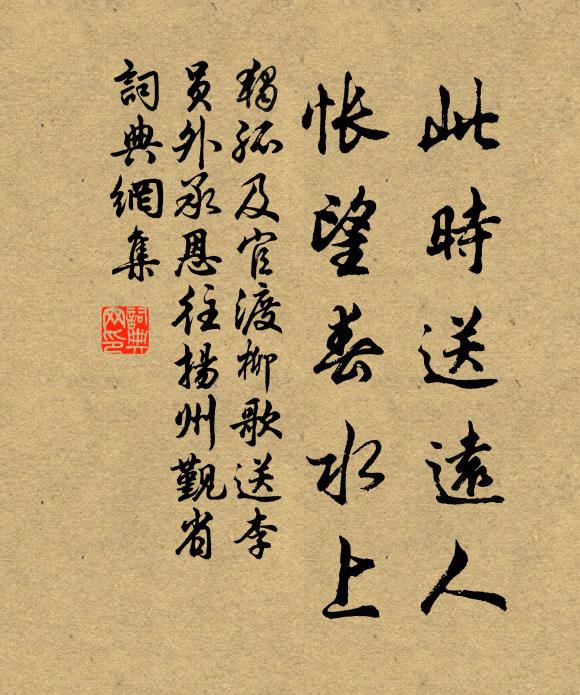 此時送遠人
悵望春水上
獨孤及官渡柳歌送李
員外承恩往揚州觀省
詞典網集
詞典
网印